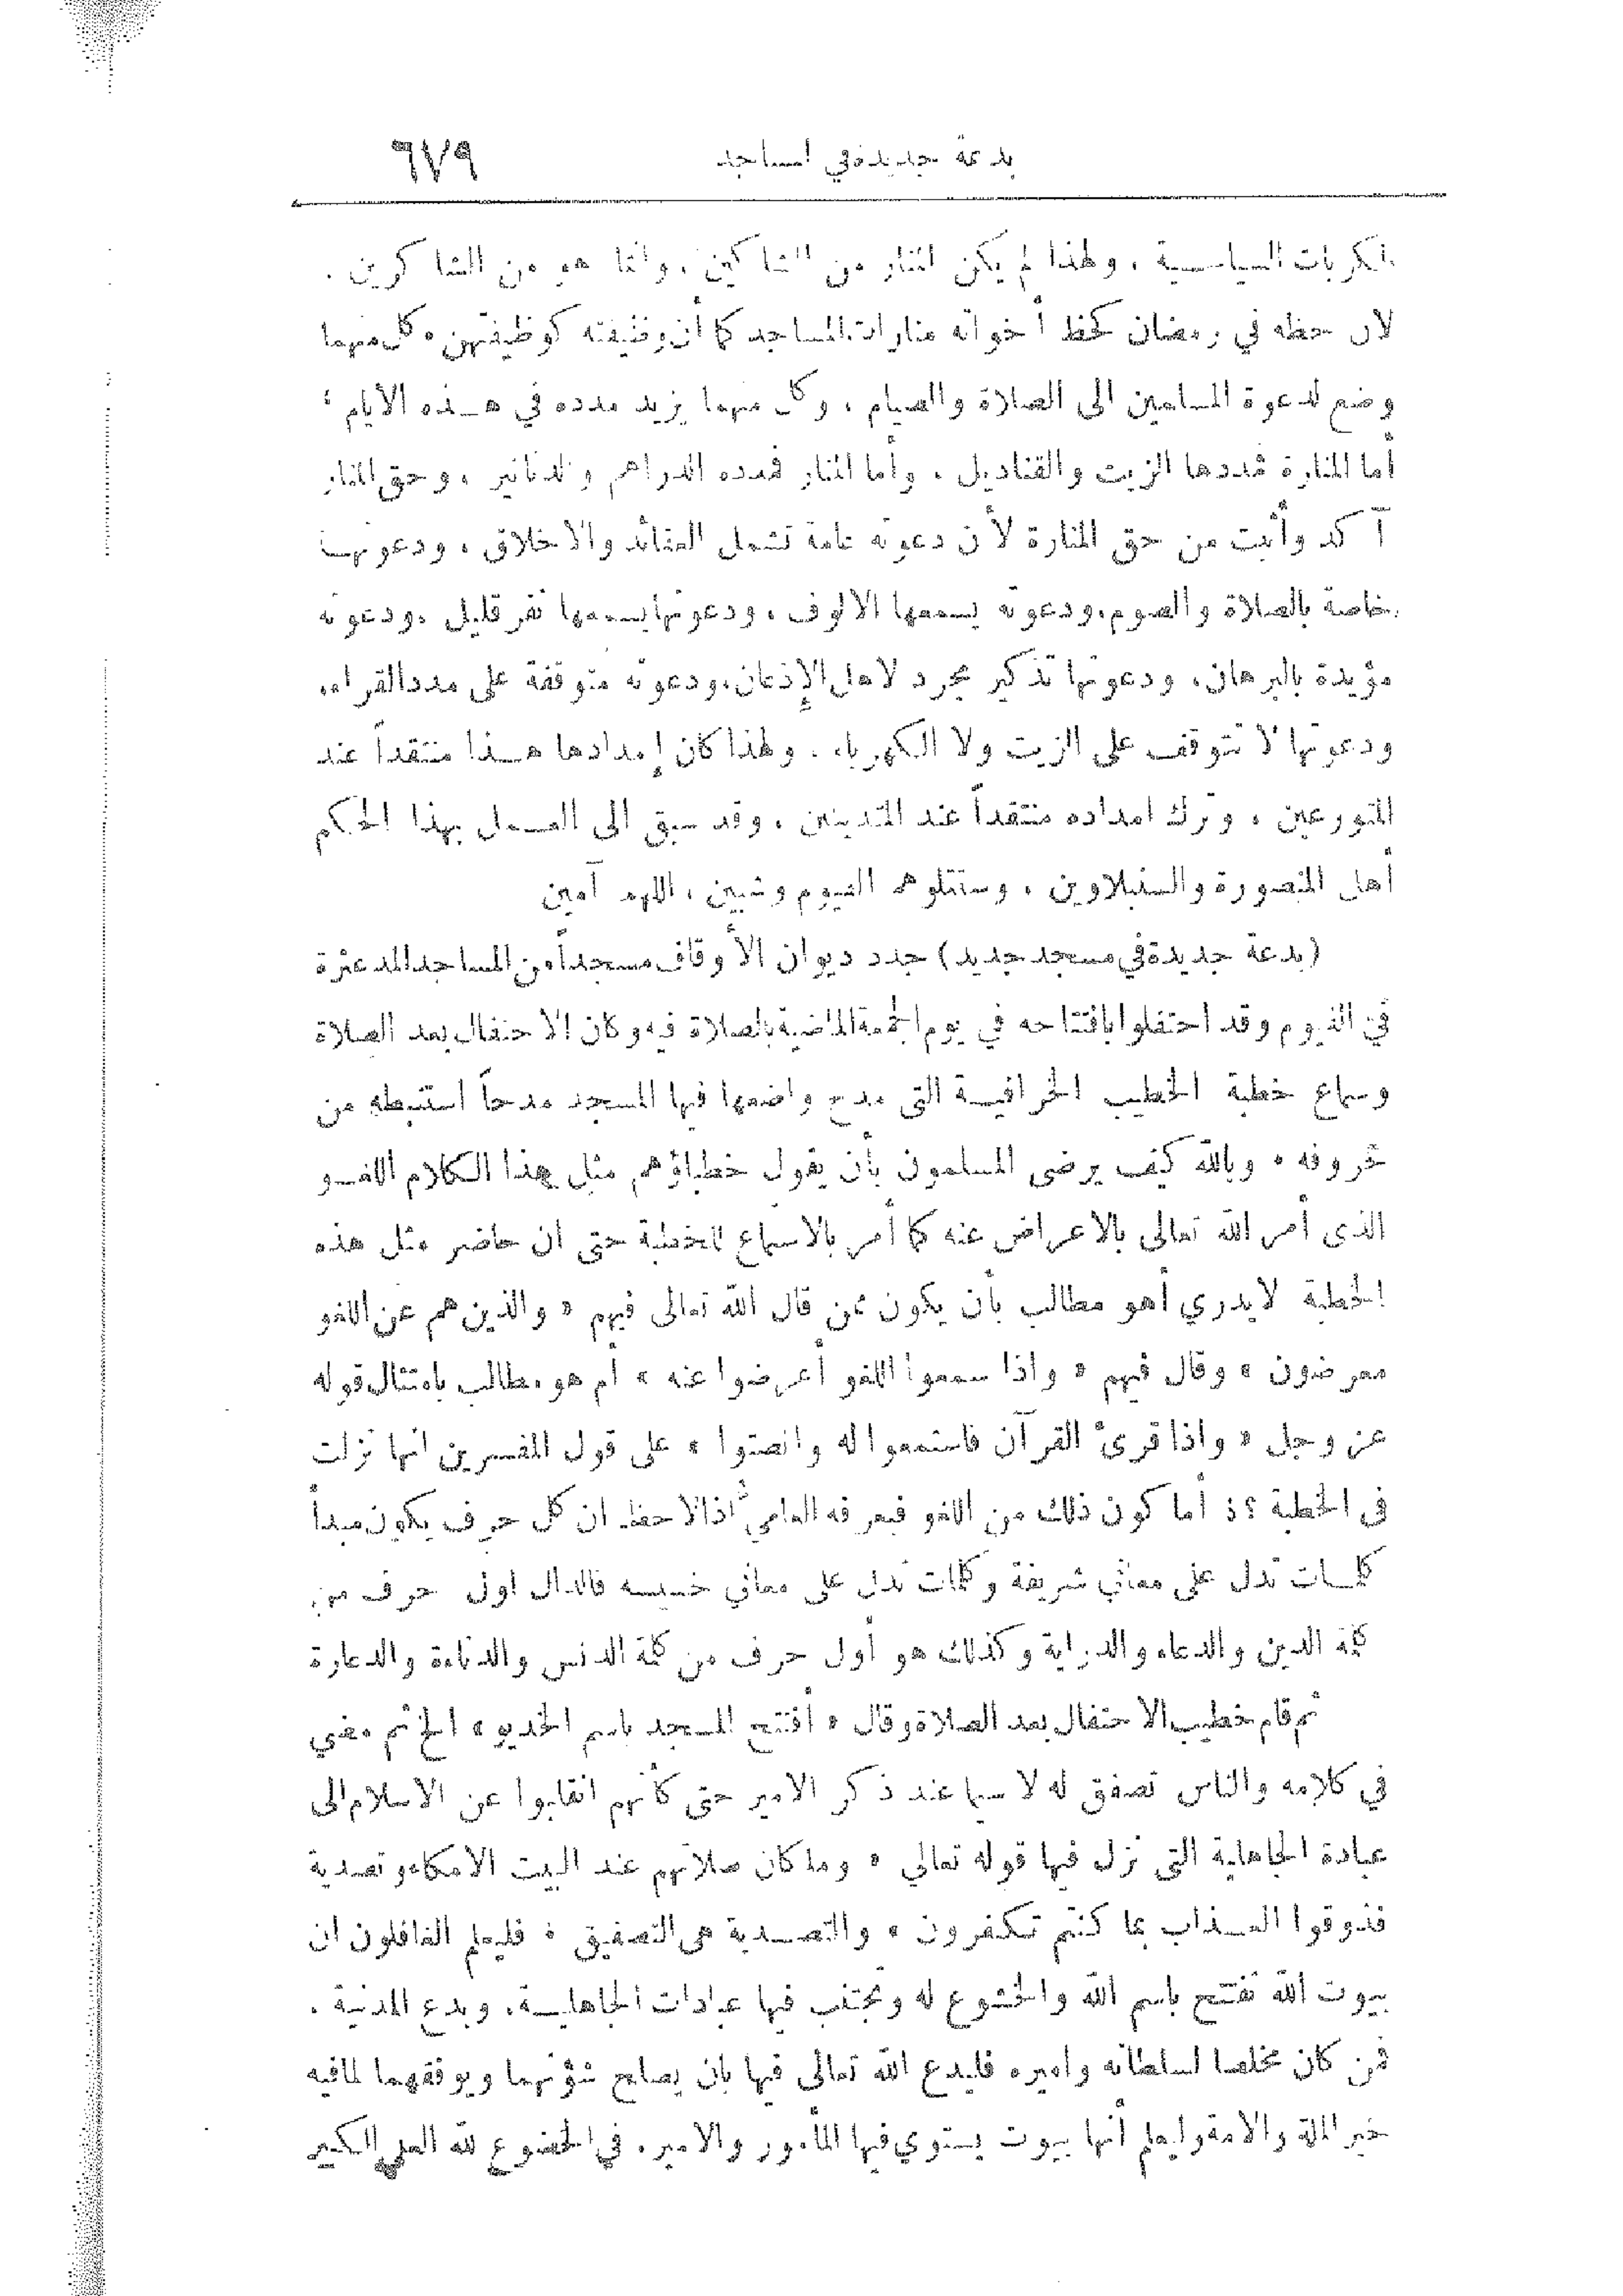 بدعة جديدة في المساجد ٦٧٩
الكربات السياسية ، ولهذا لم يكن المنار من الشاكين ، وانما هو من الشاكرين .
لان حظه في رمضان كحظ أخواته منارات المساجد كما أن وظيفته كوظيفتهن ، كل منهما
وضع لدعوة المسلمين الى الصلاة والصيام ، وكل منهما يزيد مدده في هذه الايام ؛
أما المنارة فمددها الزيت والقناديل ، وأما المنار فمدده الدراهم والدنانير ، وحق المنار
آكد وأثبت من حق المنارة لأن دعوته عامة تشمل العقائد والاخلاق ، ودعوتها
خاصة بالصلاة والصوم ، ودعوته يسمعها الالوف ، ودعوتها يسمعها نفر قليل ، ودعوته
مؤيدة بالبرهان ، ودعوتها تذكير مجرد لاهل الإذعان ، ودعوته متوقفة على مدد القراء ،
ودعوتها لا تتوقف على الزيت ولا الكهرباء ، ولهذا كان إمدادها هذا منتقداً عند
المتورعين ، وترك امداده منتقداً عند المتدينين ، وقد سبق الى العمل بهذا الحكم
أهل المنصورة والسنبلاوين ، وستتلوهم الفيوم وشبين ، اللهم آمين
( بدعة جديدة في مسجد جديد ) جدد ديوان الأوقاف مسجداً من المساجد المدعثرة
في الفيوم وقد احتفلوا بافتتاحه في يوم الجمعة الماضية بالصلاة فيه وكان الاحتفال بعد الصلاة
وسماع خطبة الخطيب الخرافية التي مدح واضعها فيها المسجد مدحاً استنبطه من
حروفه ، وبالله كيف يرضى المسلمون بأن يقول خطباؤهم مثل هذا الكلام اللغو
الذى أمر الله تعالى بالاعراض عنه كما أمر بالاستماع للخطبة حتى ان حاضر مثل هذه
الخطبة لا يدري أهو مطالب بأن يكون ممن قال الله تعالى فيهم « والذين هم عن اللغو
معرضون » وقال فيهم « واذا سمعوا اللغو أعرضوا عنه » أم هو مطالب بامتثال قوله
عز وجل « واذا قرئ القرآن فاستمعوا له وانصتوا » على قول المفسرين انها نزلت
فى الخطبة ؟؟ أما كون ذلك من اللغو فيعرفه العامي اذا لاحظ ان كل حرف يكون مبدأ
كلمات تدل على معاني شريفة وكلمات تدل على معاني خسيسه فالدال اول حرف من
كلمة الدين والدعاء والدراية وكذلك هو أول حرف من كلمة الدنس والدناءة والدعارة
ثم قام خطيب الاحتفال بعد الصلاة وقال « أفتتح المسجد باسم الخديو » الخ ثم مضي
في كلامه والناس تصفق له لا سيما عند ذكر الامير حتى كأنهم انقلبوا عن الاسلام الى
عبادة الجاهلية التي نزل فيها قوله تعالي « وما كان صلاتهم عند البيت الا مكاء وتصدية
فذوقوا العذاب بما كنتم تكفرون » والتصدية هى التصفيق ، فليعلم الغافلون ان
بيوت الله تفتتح باسم الله والخشوع له وتجتنب فيها عبادات الجاهلية ، وبدع المدنية .
فمن كان مخلصا لسلطانه واميره فليدع الله تعالى فيها بان يصلح شؤنهما ويوفقهما لما فيه
خير الملة والامة وليعلم أنها بيوت يستوي فيها المأمور والامير ، في الخضوع لله العلي الكبير